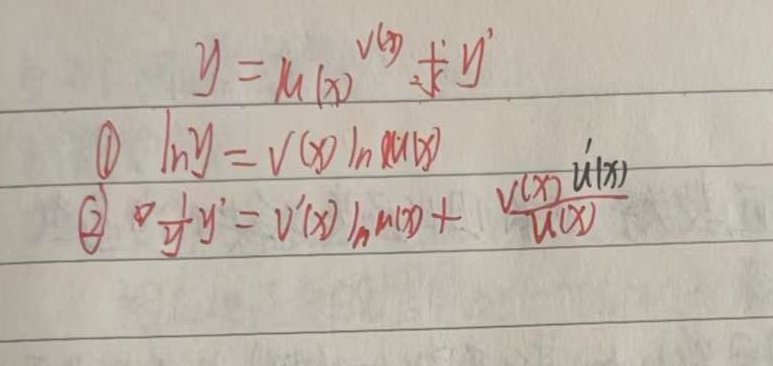 y = u(x)^v(x) 求 y'
① ln y = v(x) ln u(x)
② 1/y y' = v'(x) ln u(x) + v(x) u'(x) / u(x)